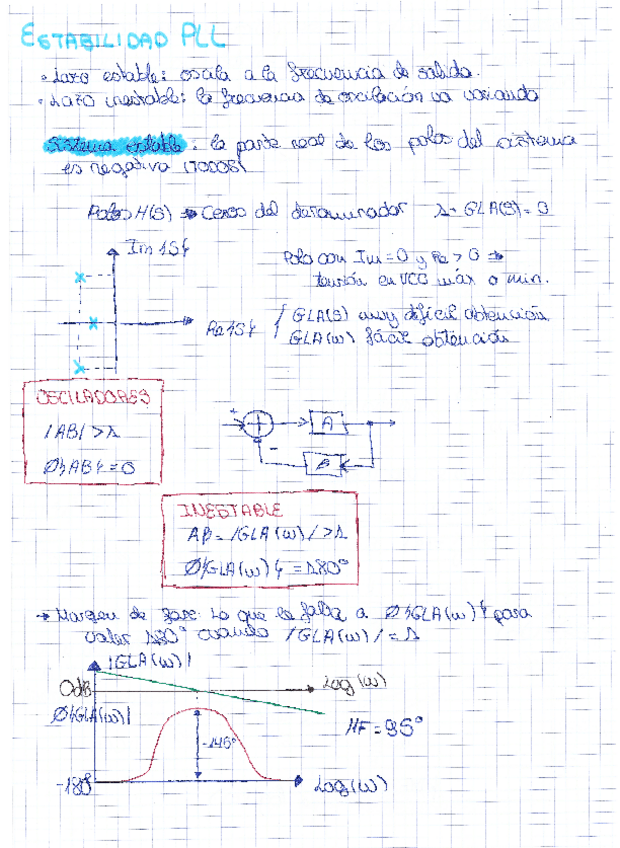 ESTABILIDAD PLL
• Lazo estable: oscila a la frecuencia de salida.
• Lazo inestable: la frecuencia de oscilación va variando
Sistema estable: la parte real de los polos del sistema
es negativa (TODOS)
Polos H(s) → Ceros del denominador 1-GLA(s)=0
Im{s}
Polo con Im=0 y Re>0 →
tensión en VCO máx o min.
Re{s}
GLA(s) muy difícil obtención
GLA(ω) fácil obtención
OSCILADORES
|AB|>1
Ø{AB}=0
+
A
-
B
INESTABLE
Aβ=|GLA(ω)|>1
Ø{GLA(ω)}=180°
→ Margen de fase: Lo que le falta a Ø{GLA(ω)} para
valer 180° cuando |GLA(ω)|=1
|GLA(ω)|
0dB
Log(ω)
Ø{GLA(ω)}
-145°
MF=35°
-180°
Log(ω)